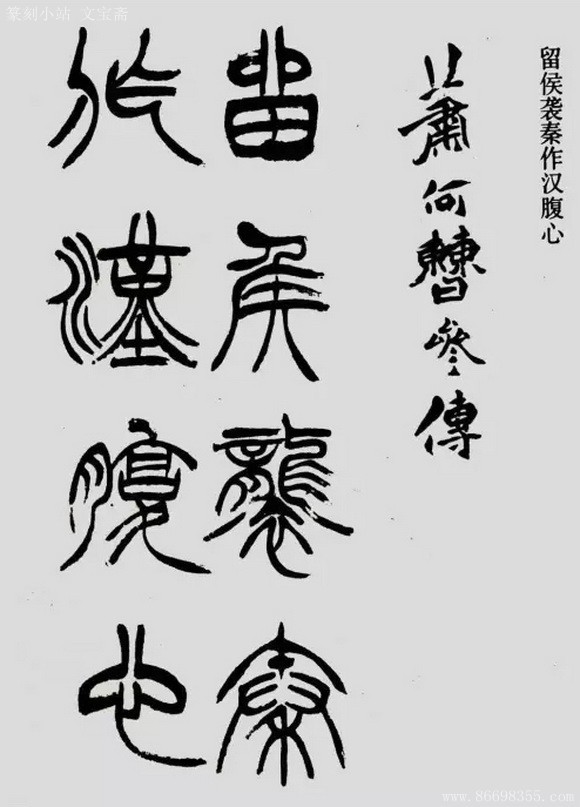 篆刻小站 文宝斋
留侯袭秦作汉腹心
蕭何曹參傳
留侯襲秦
作漢腹心
www.86698355.com